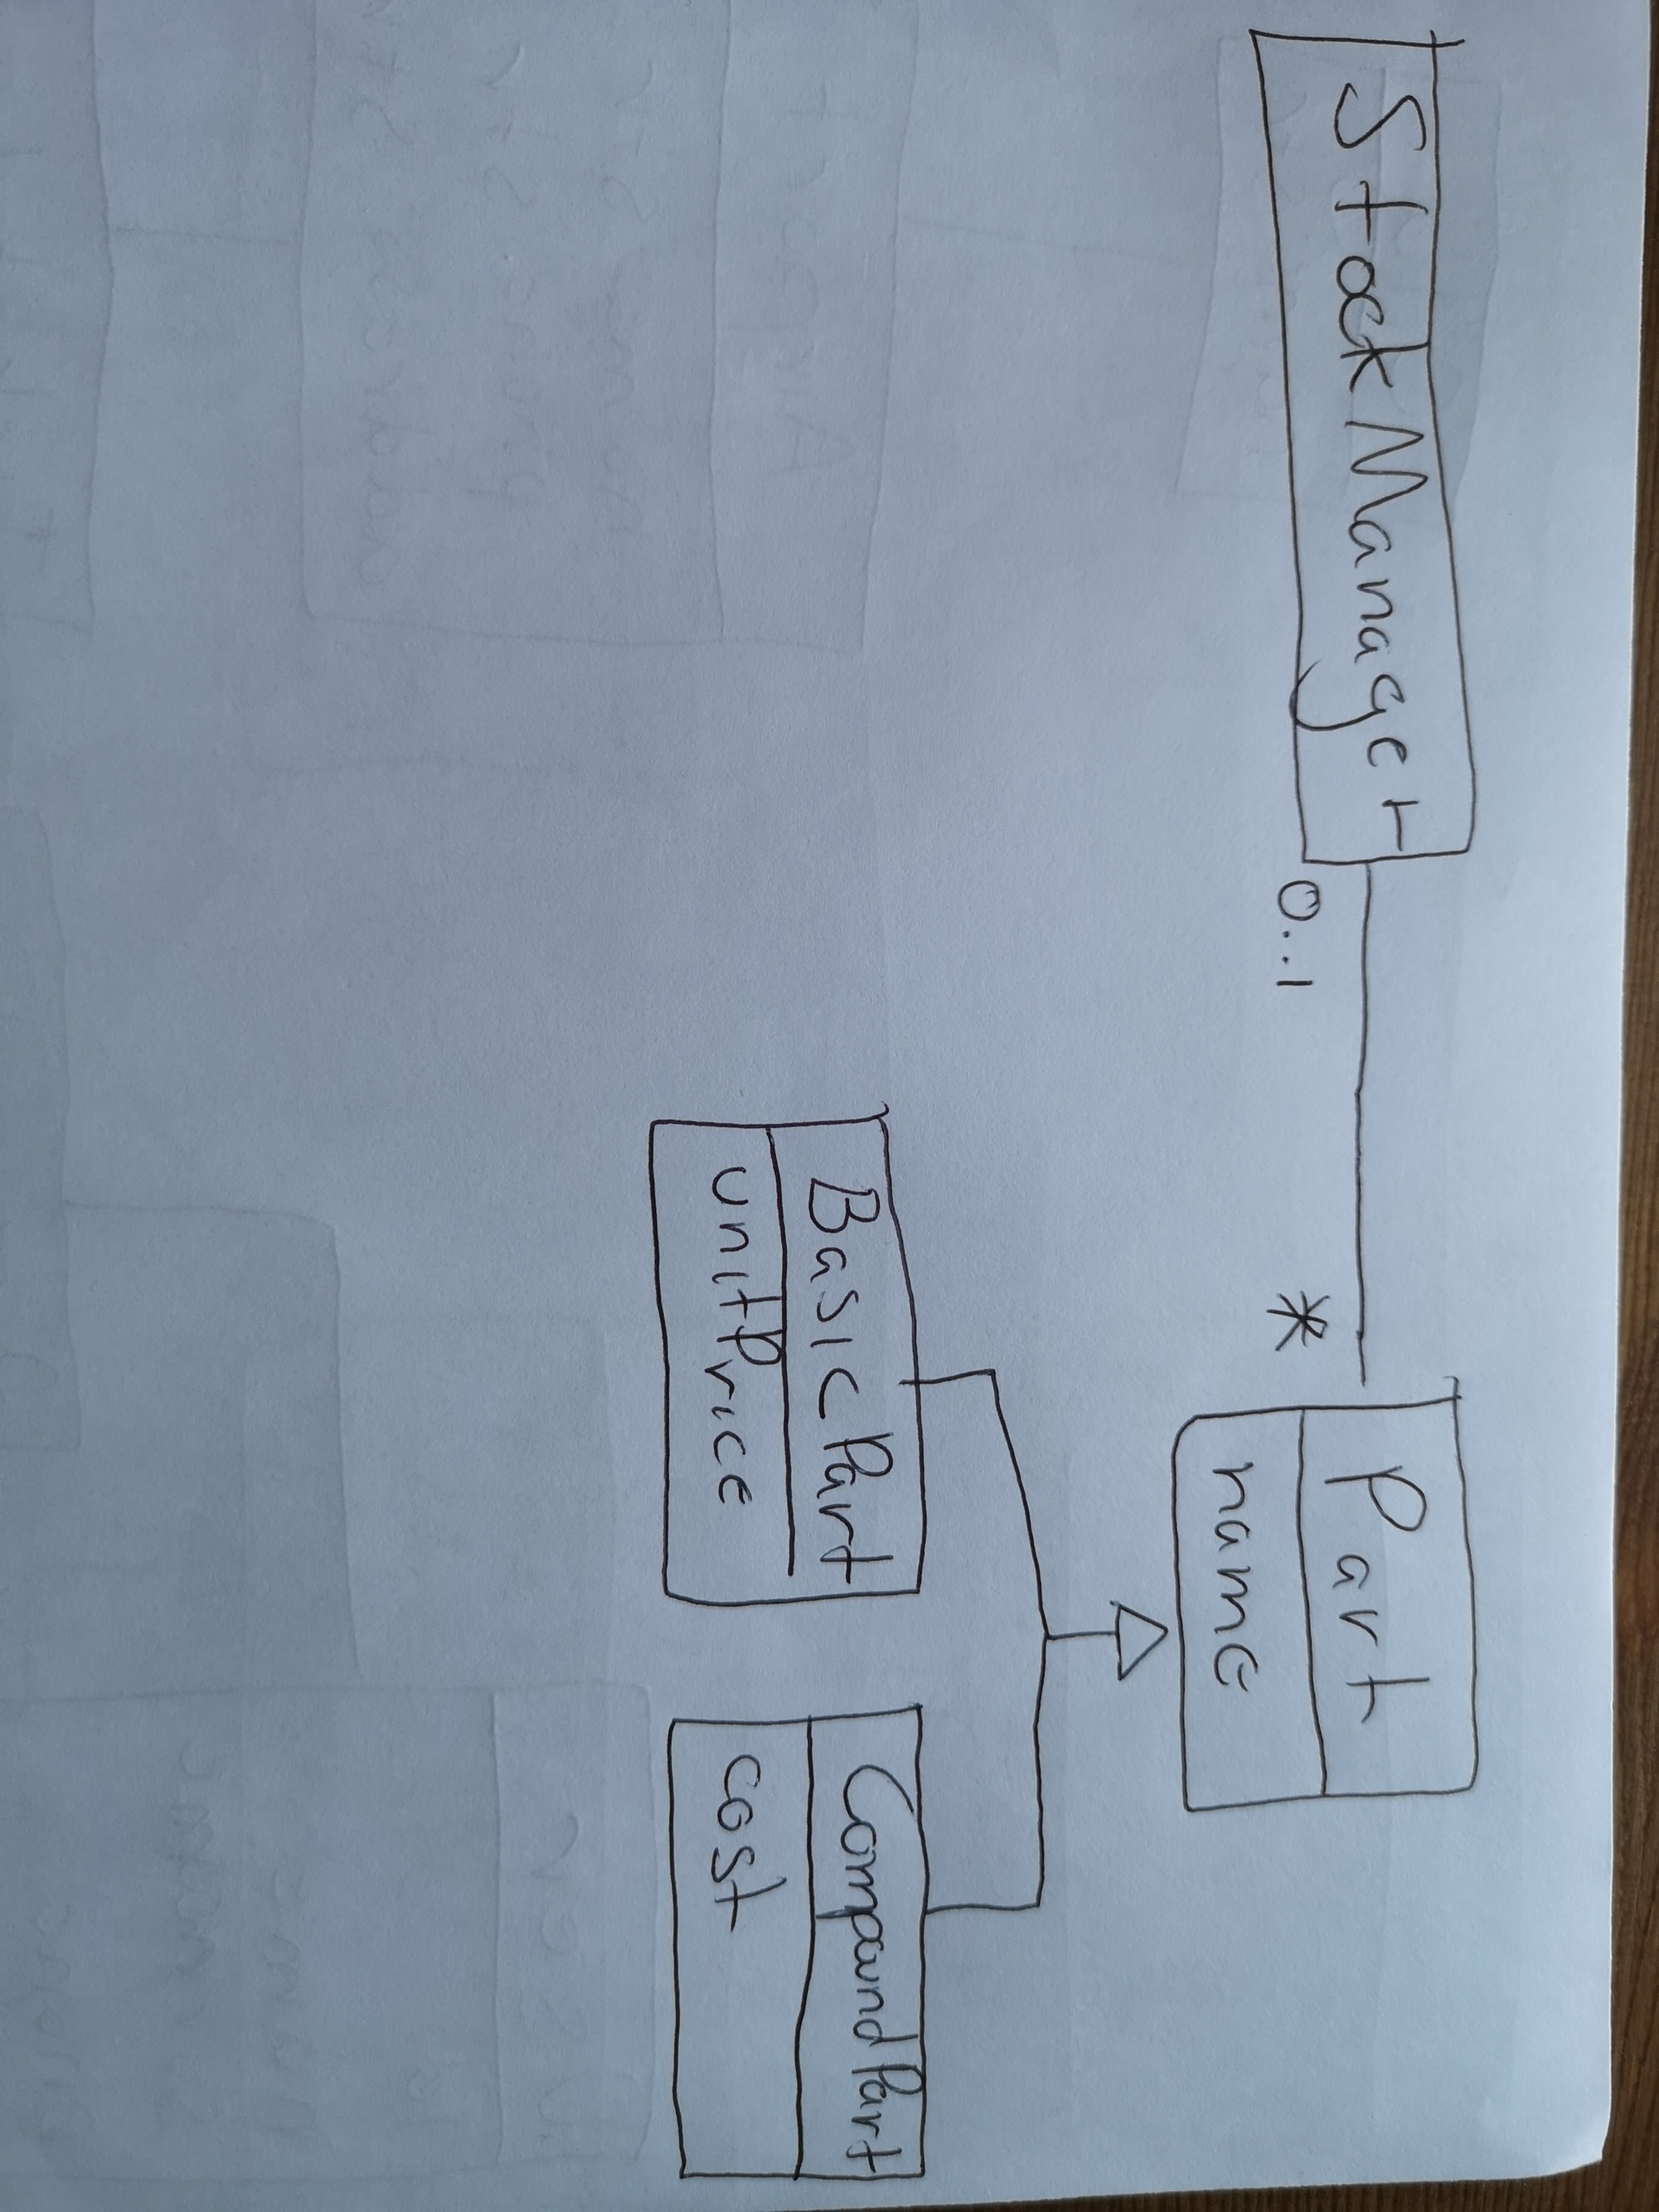 StockManager
0..1
*
Part
name
BasicPart
unitPrice
CompoundPart
cost